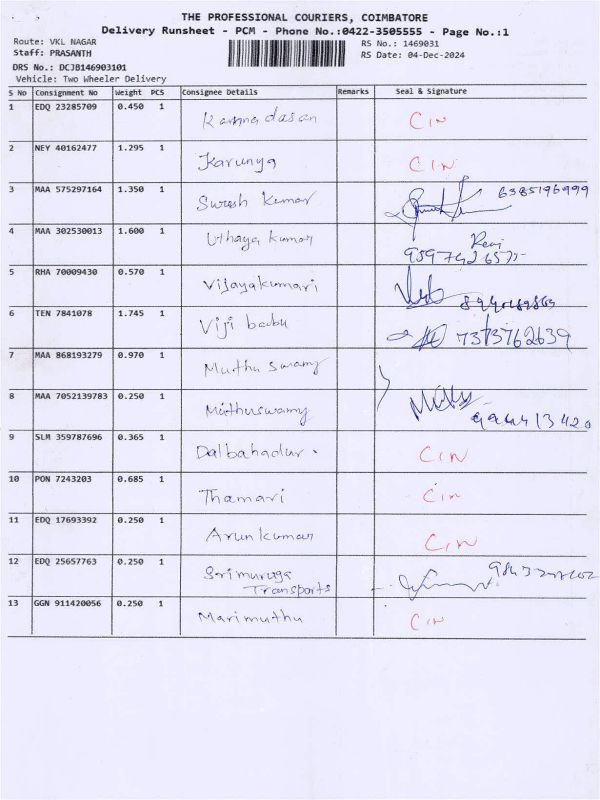 THE PROFESSIONAL COURIERS, COIMBATORE
Delivery Runsheet - PCM - Phone No.:0422-3505555 - Page No.:1
Route: VKL NAGAR RS No.: 1469031
Staff: PRASANTH RS Date: 04-Dec-2024
DRS No.: DCJB146903101
Vehicle: Two Wheeler Delivery
S No Consignment No Weight PCS Consignee Details Remarks Seal & Signature
1 EDQ 23285709 0.450 1 Kannadasan CIN
2 NEY 40162477 1.295 1 Karunya CIN
3 MAA 575297164 1.350 1 Suresh Kumar 6385196999
4 MAA 302530013 1.600 1 Uthaya kumar
5 RHA 70009430 0.570 1 Vijayakumari
6 TEN 7841078 1.745 1 Viji babu 7373762639
7 MAA 868193279 0.970 1 Muthu swamy
8 MAA 7052139783 0.250 1 Muthuswamy
9 SLM 359787696 0.365 1 Dalbahadur. CIN
10 PON 7243203 0.685 1 Thamari CIN
11 EDQ 17693392 0.250 1 Arunkumar CIN
12 EDQ 25657763 0.250 1 Srimuruga
Transports
13 GGN 911420056 0.250 1 Marimuthu CIN